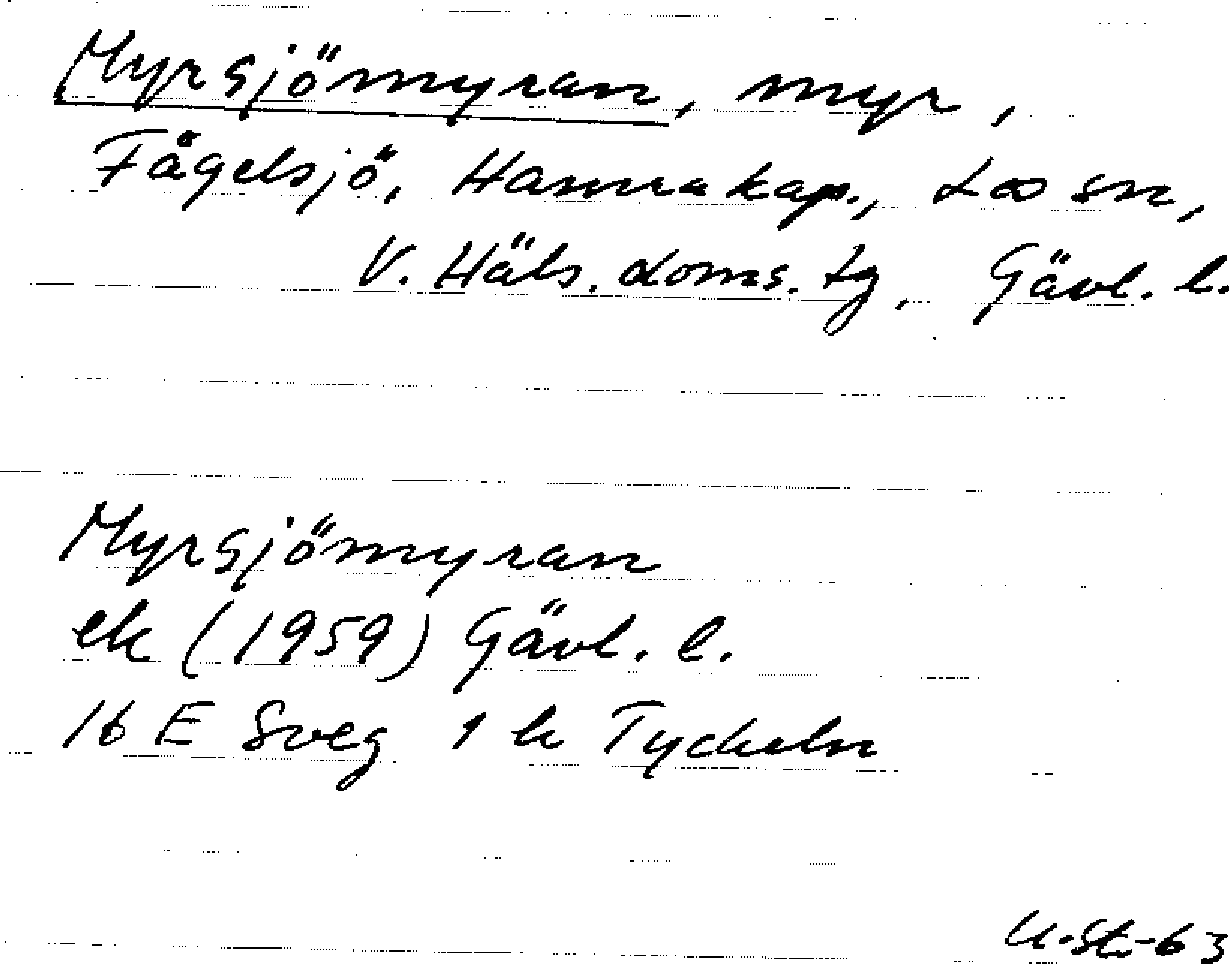 Myrsjömyran, myr,
Fågelsjö, Hamra kap., Loos sn,
V. Häls. doms. tg, Gävl. l.
Myrsjömyran
ek (1959) Gävl. l.
16 E Sveg 1 h Tyckeln
U. St. -63